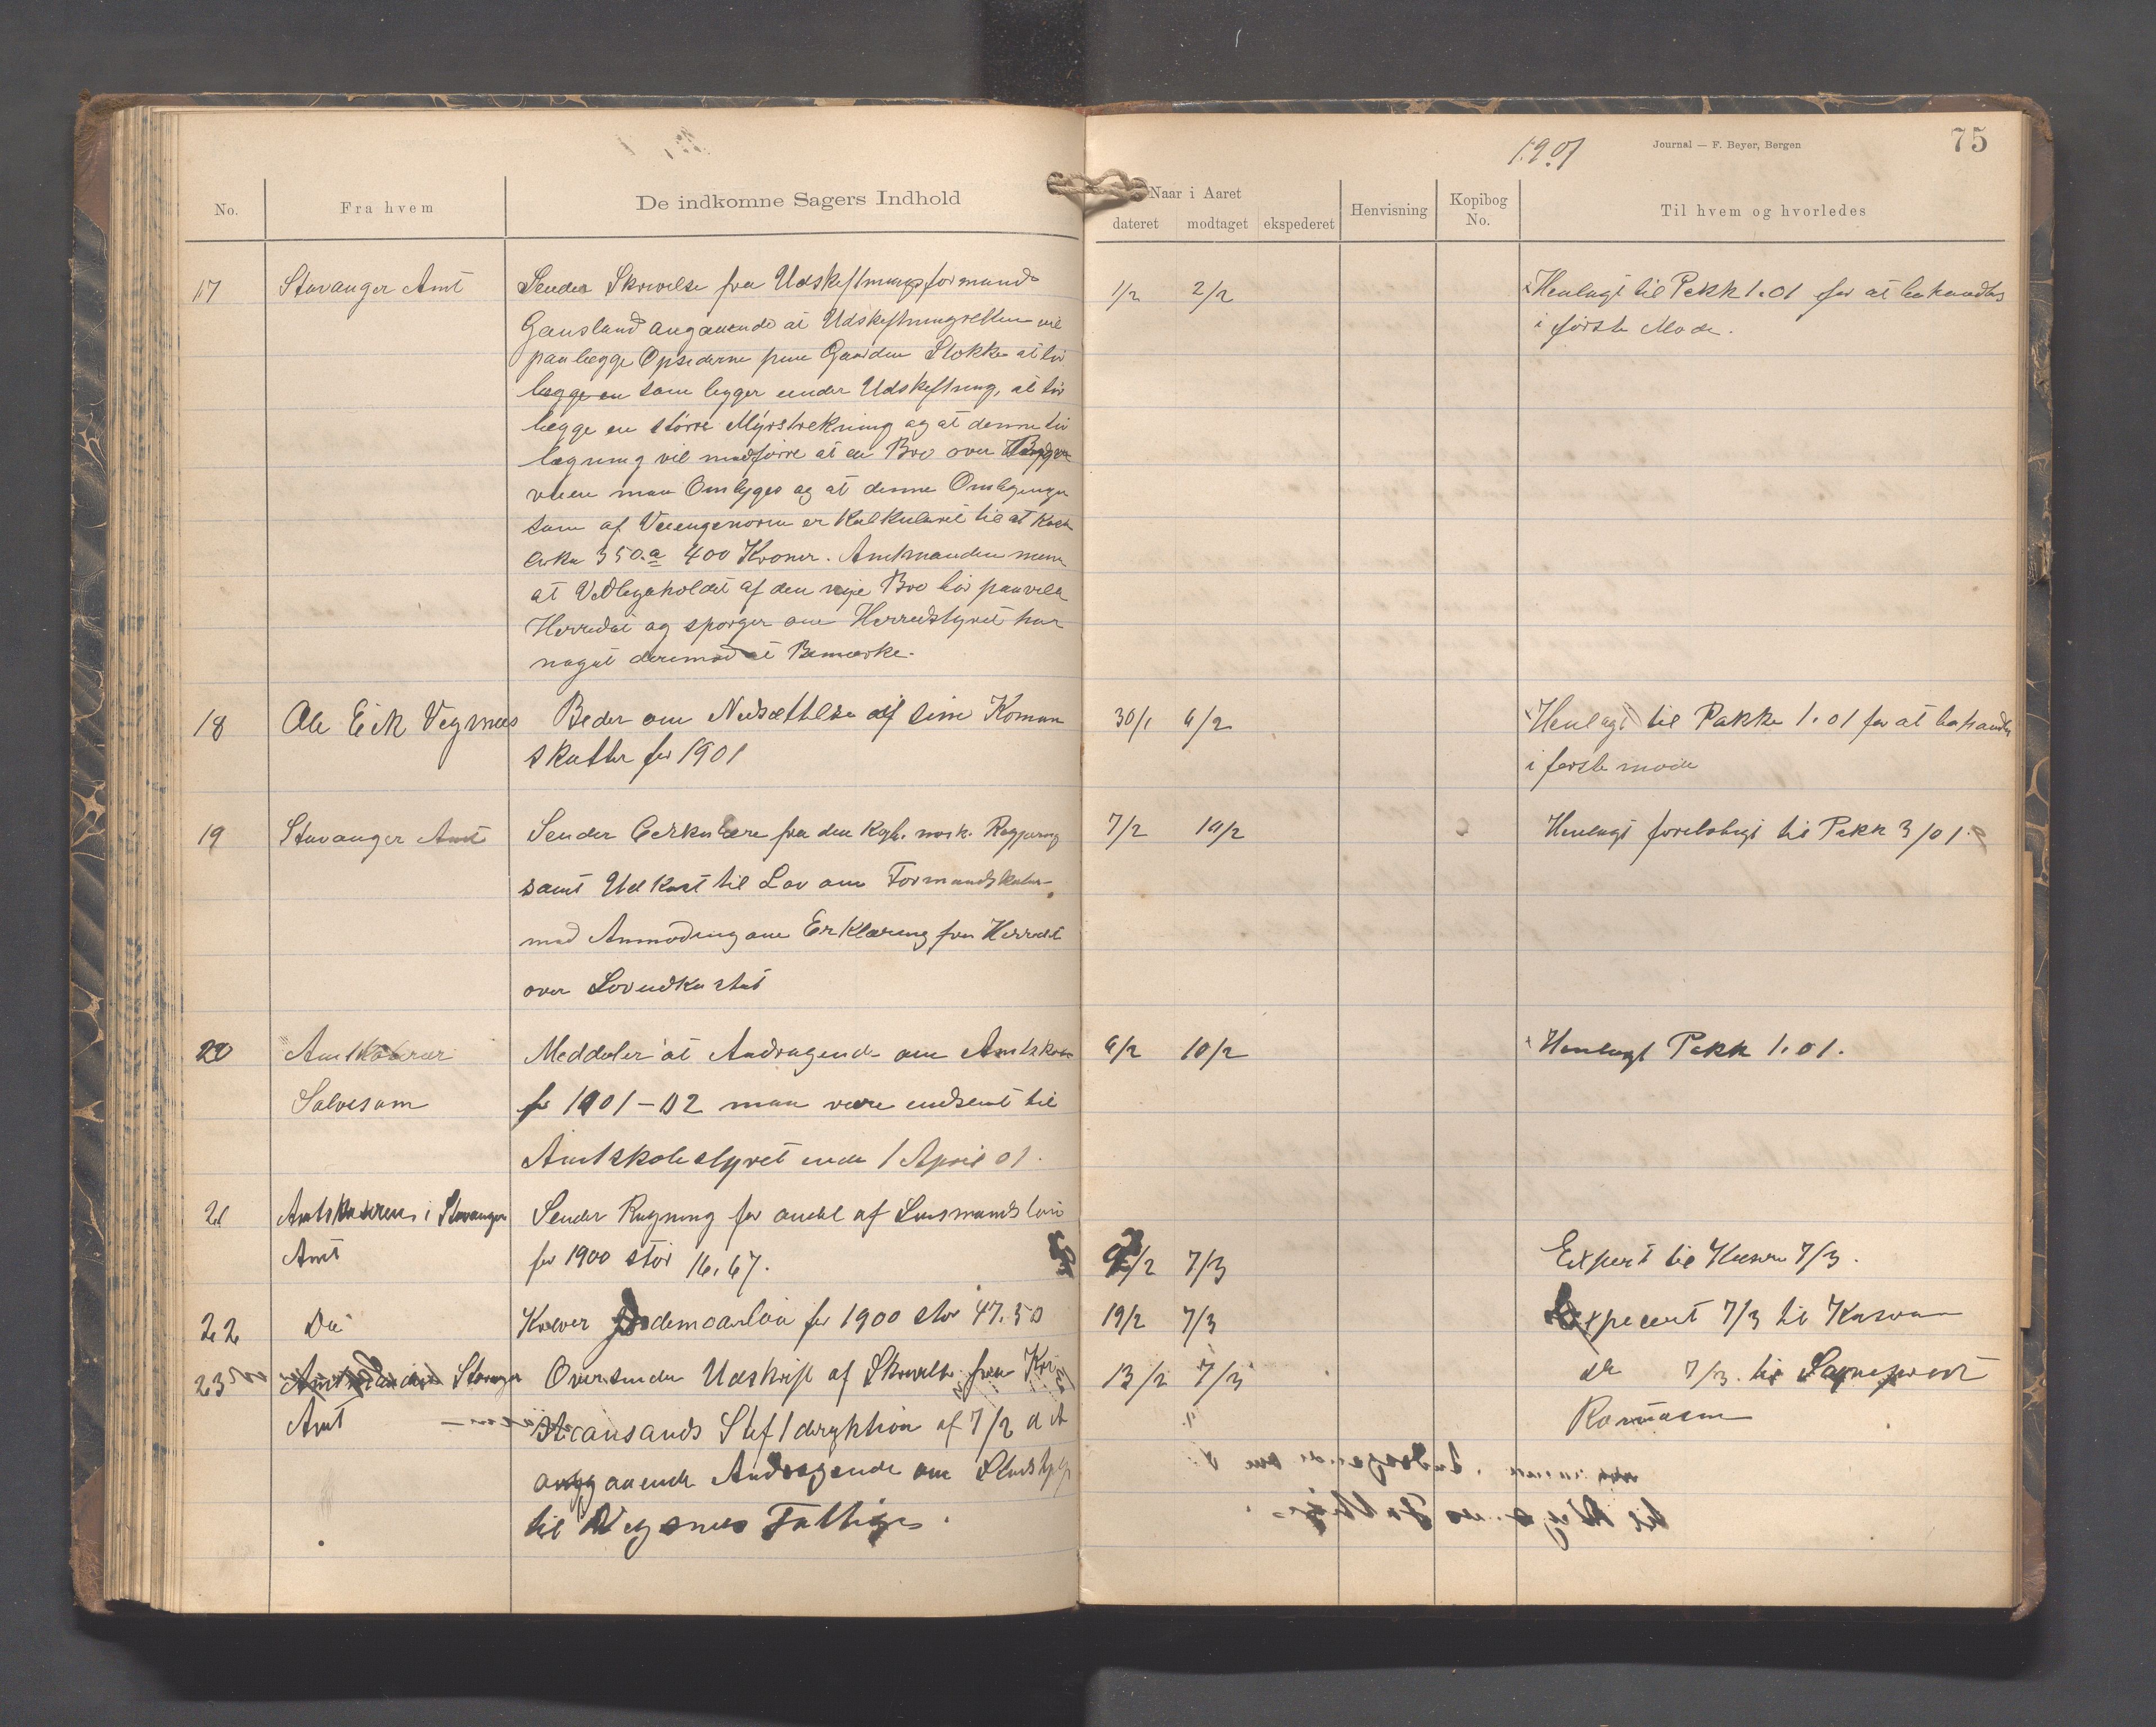 1901
Journal — F. Beyer, Bergen
75
No.
Fra hvem
De indkomne Sagers Indhold
Naar i Aaret
dateret
modtaget
ekspederet
Henvisning
Kopibog No.
Til hvem og hvorledes
17
Stavanger Amt
Sender Skrivelse fra Udskiftningsformand
Gausland angaaende at Udskiftningsretten vil
paalægge Opsiderne paa Gaarden Stokke at tør
lægge en som ligger under Udskiftning, at tør
lægge en större Myrstrekning og at denne tör
lægning vil medførre at en Bro over Bygde
veien maa Omlægges og at denne Omlægning
som af Veiengeniøren er Kalkuleret til at Koste
Cirka 350 a 400 Kroner. Amtmanden mener
at Vedlegeholdet af den nye Bro bör paavile
Herredet og spörger om Herredstyret har
noget derimod at Bemærke.
1/2
2/2
Henlagt til Pakk 1.01 for at behandles
i förste Möde.
18
Ole Eik Vegsnes
Beder om Nedsættelse af sine Komun
skatter for 1901
30/1
6/2
Henlagt til Pakke 1.01 for at behandles
i förste möde
19
Stavanger Amt
Sender Cirkulære fra den Kgl. norsk. Regjering
samt Udkast til Lov om Formandskaber
med Anmodning om Erklæring fra Herredet
over Lovudkastet
7/2
10/2
Henlagt foreløbigt til Pakk 3/01.
20
Amtskaserer
Salvesom
Meddeler at Andragende om Amtskole
for 1901-02 maa være indsent til
Amtskolestyret inden 1 April 01.
6/2
10/2
Henlagt Pakk 1.01.
21
Amtskasereren i Stavanger
Amt
Sender Regning for andel af Lensmandslön
for 1900 stör 16.67.
/2
7/3
Expert til Kaseren 7/3.
22
Do
Kræver Jordemoderlön for 1900 stor 47.50
19/2
7/3
Expecert 7/3 til Kaseren
23
Amtmanden Stavanger
Amt
Oversender Udskrift af Skrivelse fra Kri
stiansands Stiftdirektion af 7/2 d A
angaaende Andragende om
til Vegsnes Fattige.
13/2
7/3
do 7/3 til Sognepræst